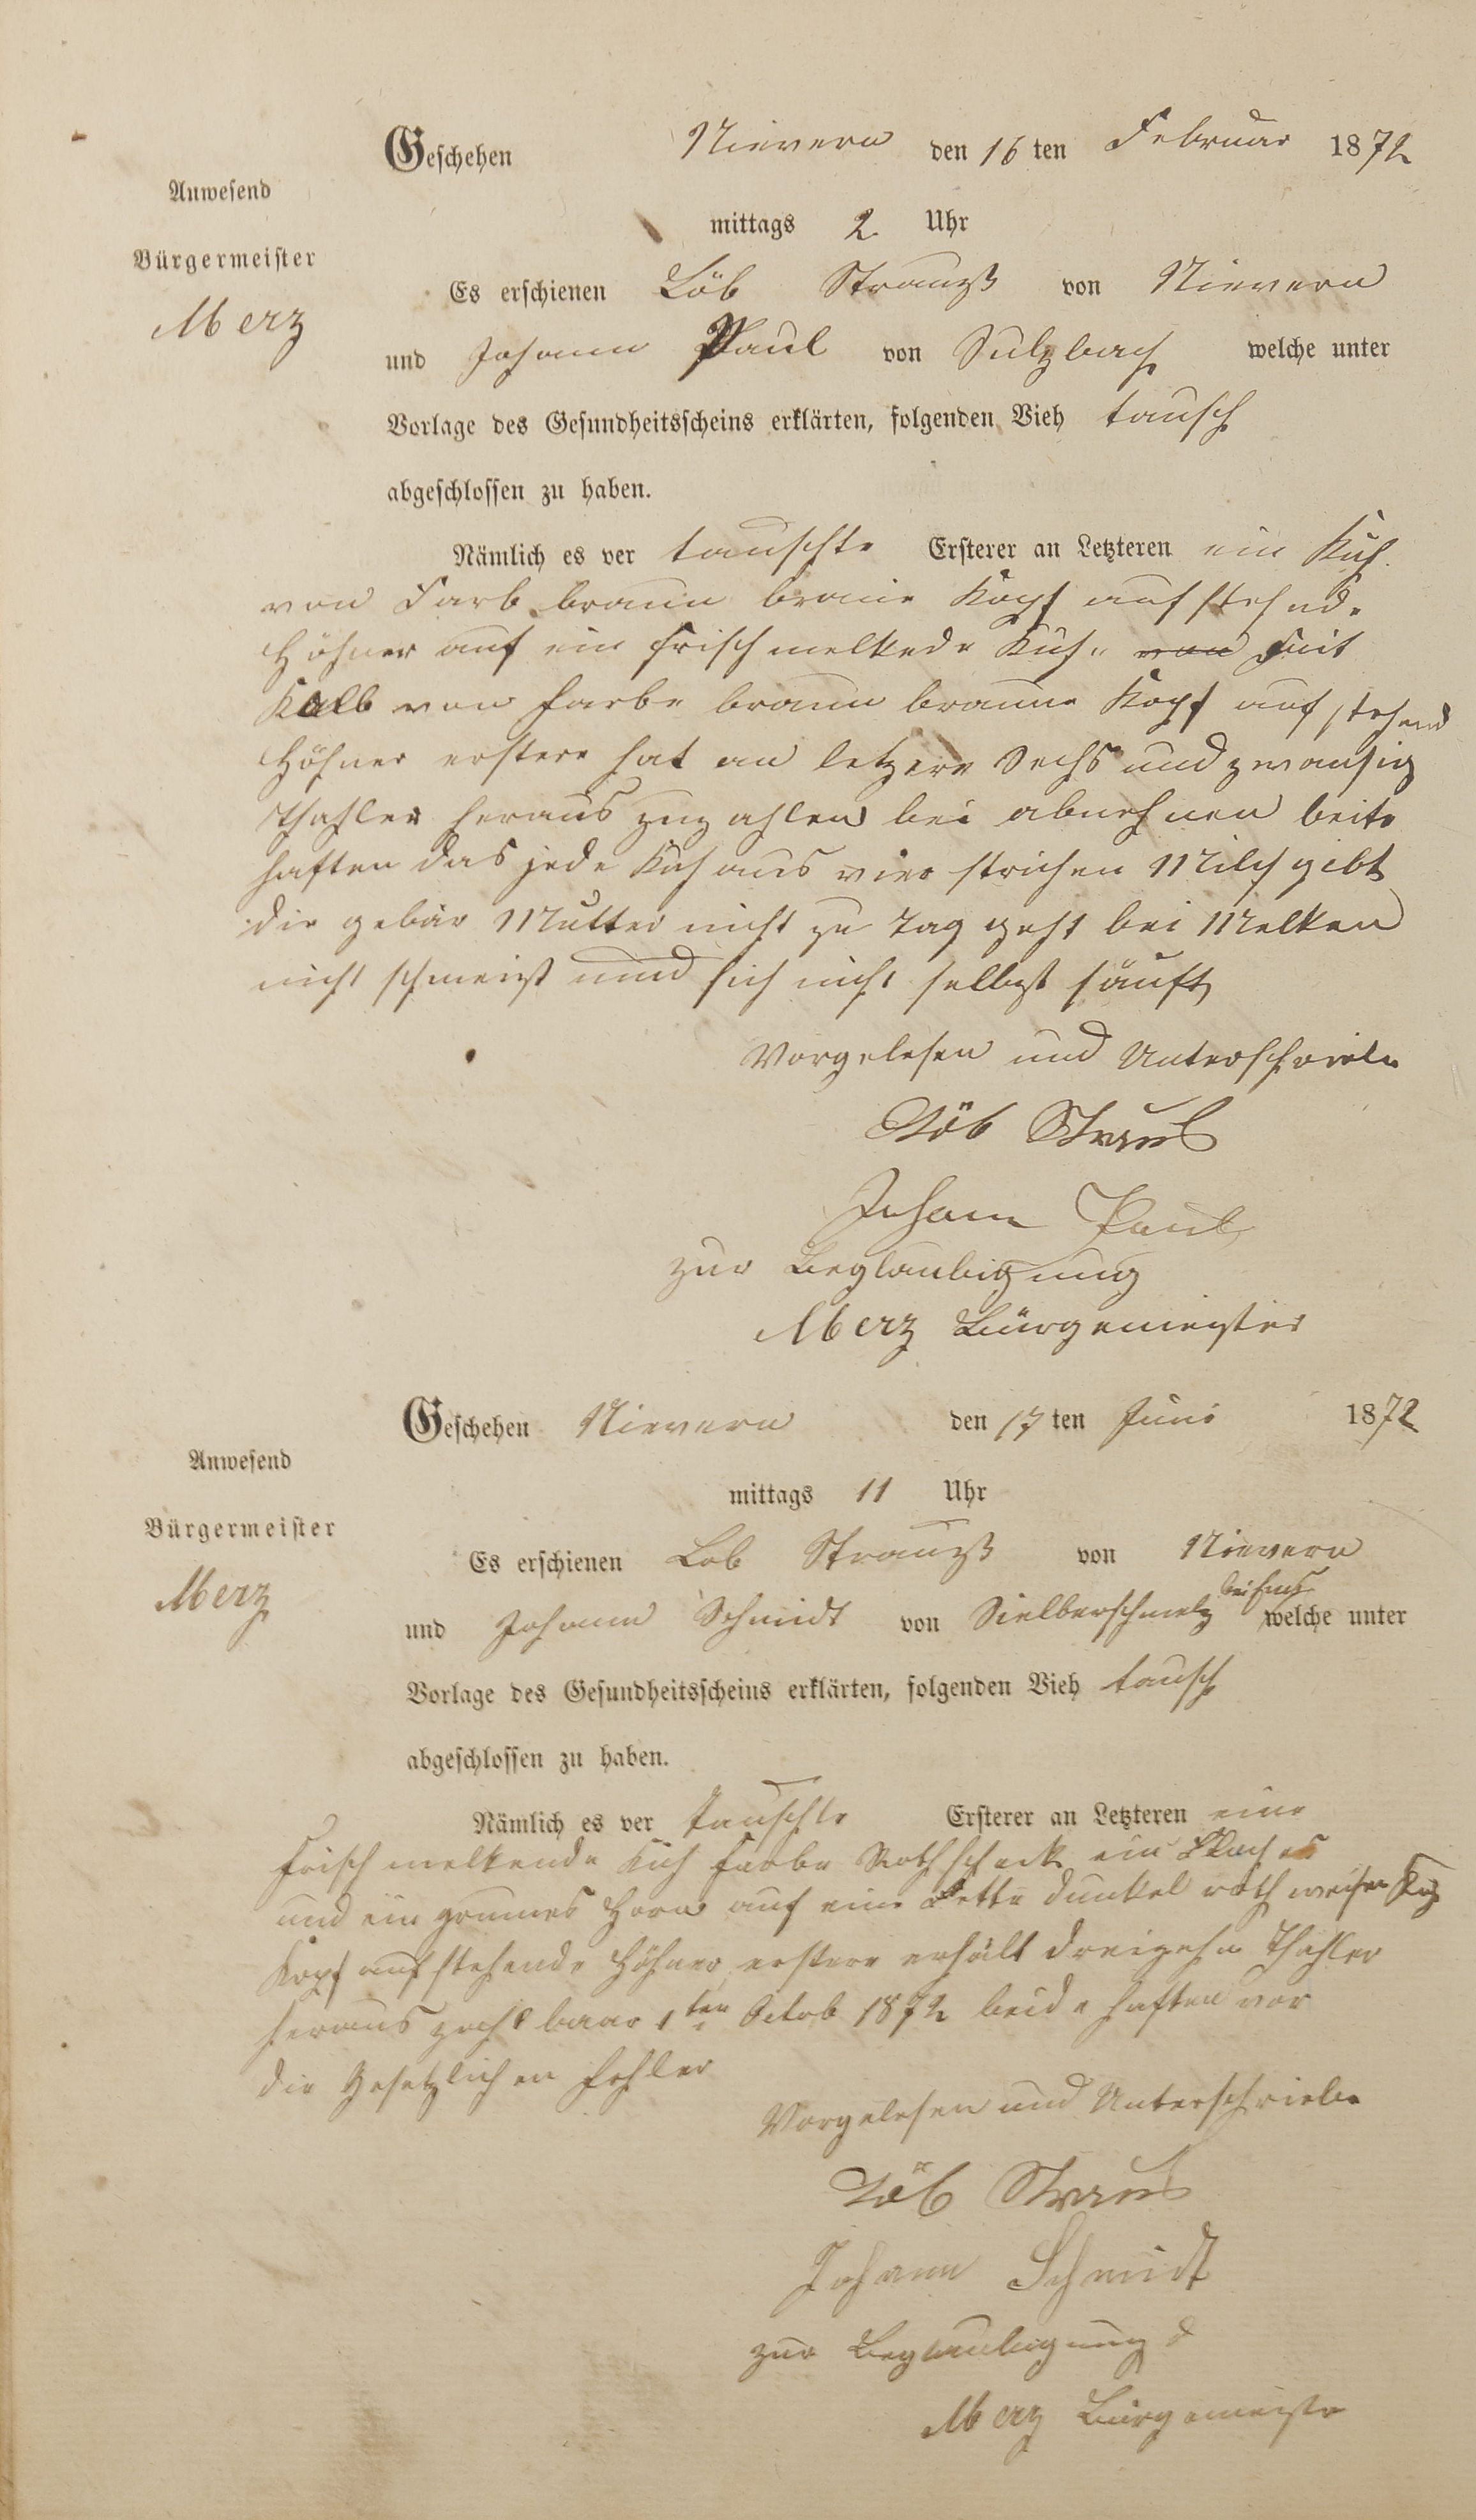 Geschehen Nievern den 16 ten Februar 1872
Anwesend
mittags 2 Uhr
Bürgermeister
Es erschienen Löb Strauß von Nievern
Merz
und Johann Paul von Sulzbach welche unter
Vorlage des Gesundheitsscheins erklärten, folgenden Vieh tausch
abgeschlossen zu haben.
Nämlich es ver tauschte Ersterer an Letzteren ein Kuh.
von Farb braun braune Kopf aufstehnde
Höhner auf ein frisch melkede Kuh von mit
Kalb von Farbe braun braune Kopf auf stehend
Höhner erstere hat an letzere Sechs und zwansig
Thahler heraus zuzahlen bei abnehmen beite
haften das jede Kuh aus vier strichen Milch gibt
die gebär Mutter nicht zu Tag geht bei Melken
nicht schmeist und sich nicht selbst säuft
Vorgelesen und Unterschrieben
Löb Straus
Johann Paul
zur Beglaubigung
Merz Bürgemeister
Geschehen Nievern den 17 ten Juni 1872
Anwesend
mittags 11 Uhr
Bürgermeister
Es erschienen Lob Strauß von Nievern
Merz
bei Ems
und Johann Schmidt von Sielberschmelz welche unter
Vorlage des Gesundheitsscheins erklärten, folgenden Vieh tausch
abgeschlossen zu haben.
Nämlich es ver tauschte Ersterer an Letzteren eine
Frisch melkende Kuh Farbe Rothscheck ein
und ein Horn auf eine Fette dunkel roth weisen
Kopf aufstehende Höhner erstere erhält dreizehn Thahler
heraus zahlbaar 1ten Octob 1872 beide haften vor
die Gesetzlichen Fehler
Vorgelesen und Unterschrieben
Löb Straus
Johann Schmidt
zur Beglaubigung
Merz Bürgemeister